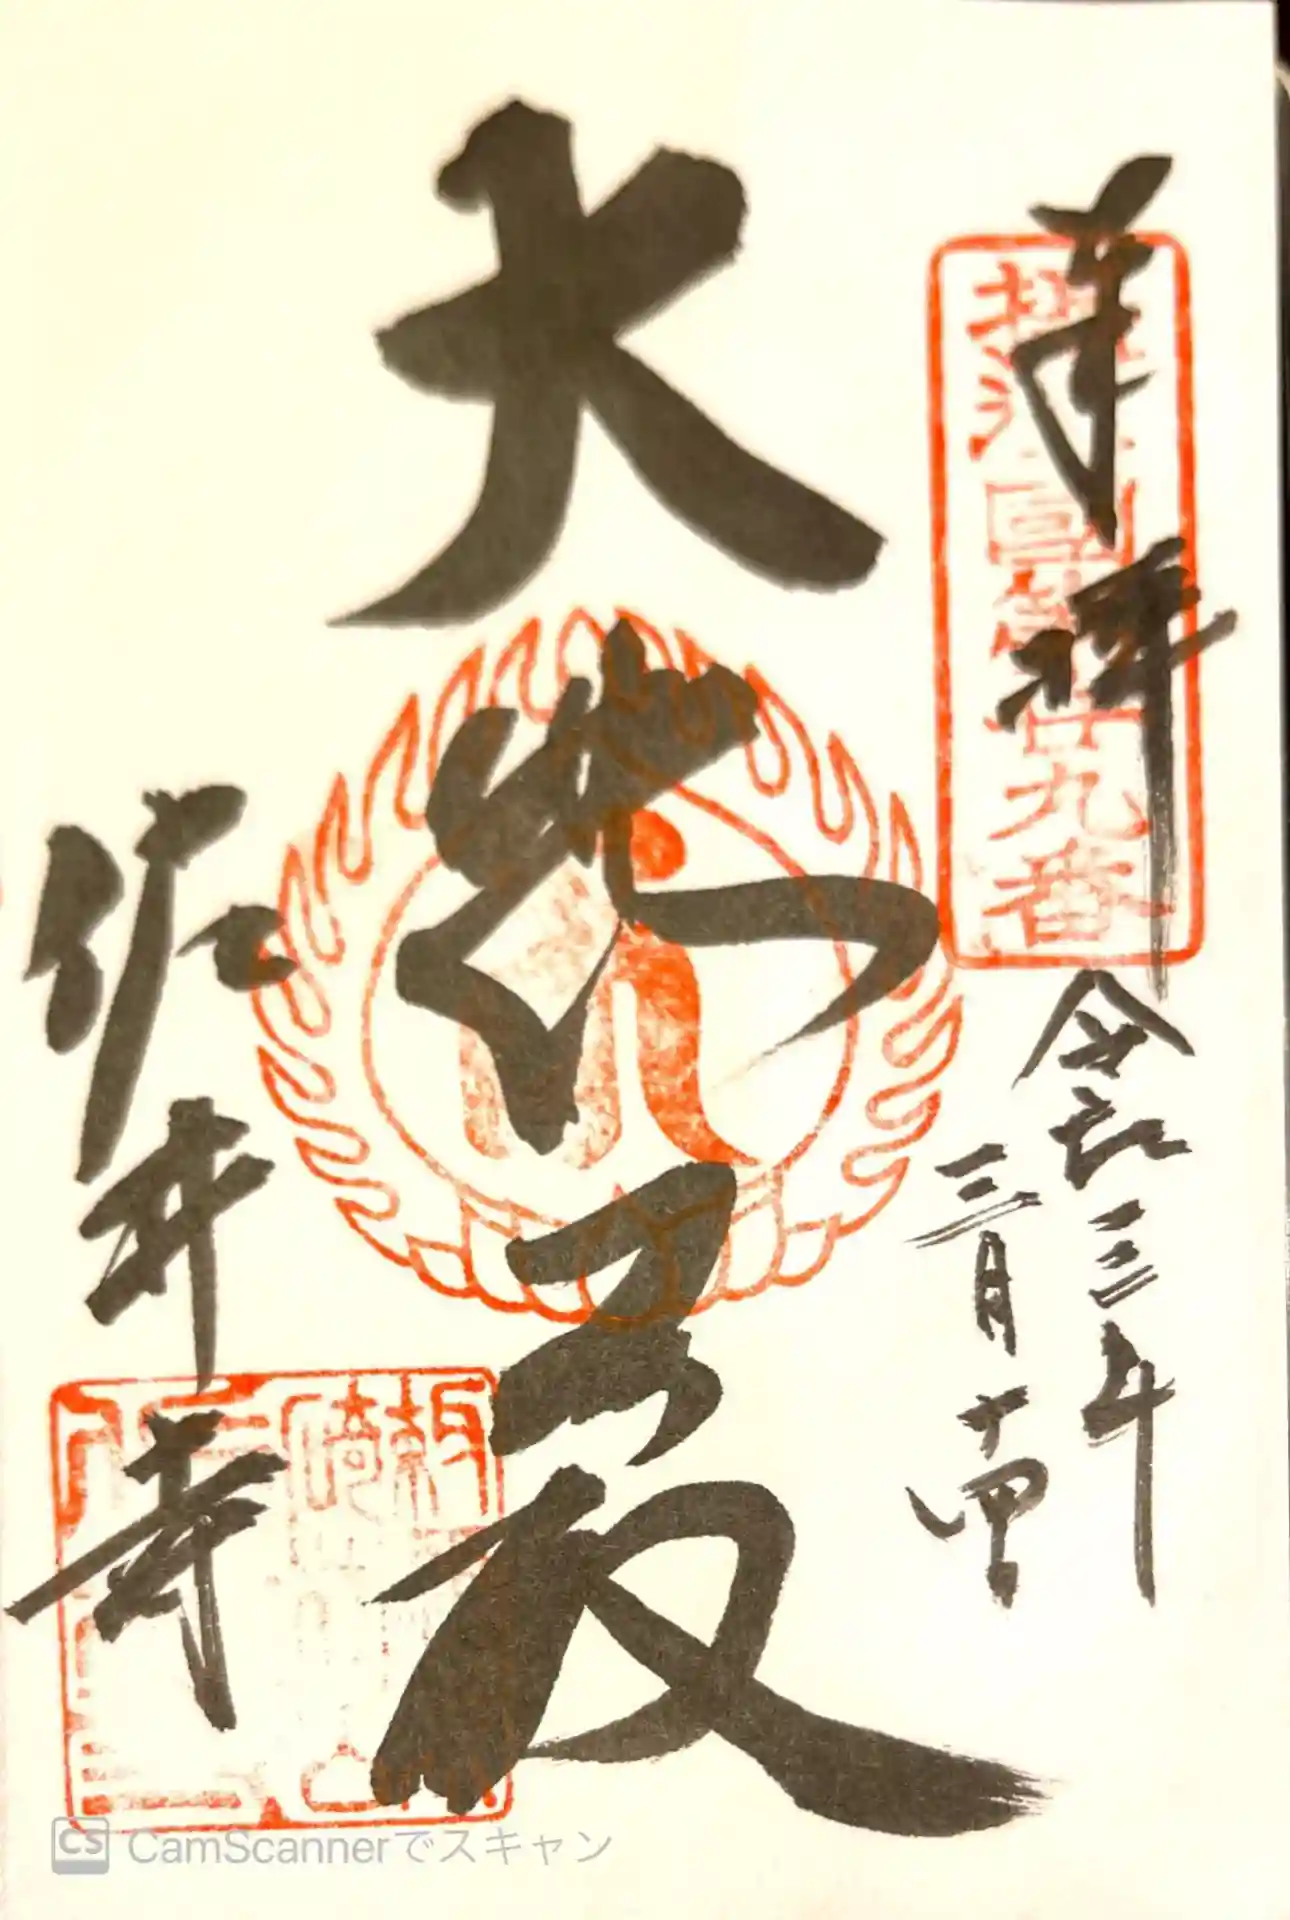 奉拝
摂津国第廿九番
令和三年
三月十四
大悲殿
佐井寺
CS CamScannerでスキャン